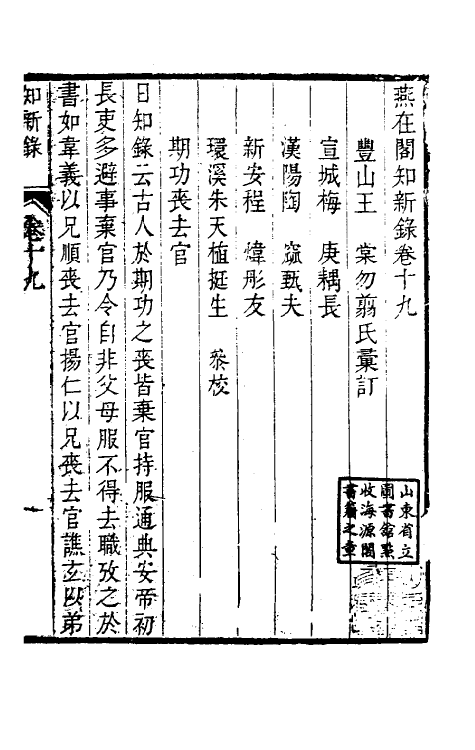 燕在閣知新錄卷十九
豐山王　棠勿翦氏彙訂
宣城梅　庚耦長
漢陽陶　窳甄夫
新安程　煒彤友
環溪朱天植挺生　叅校
期功喪去官
日知錄云古人於期功之喪皆棄官持服通典安帝初
長吏多避事棄官乃令自非父母服不得去職攷之於
書如韋義以兄順喪去官揚仁以兄喪去官譙玄以弟
知新錄
卷十九
山東省立
圖書館點
收海源閣
書籍之章